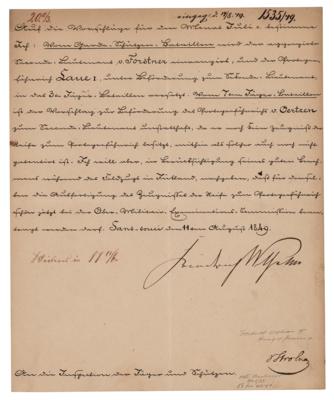 eingeg. d. 18/8. 49. 1535/49.
Auf die Vorschläge für den Monat Juli c. bestimme
Ich: Vom Garde-Schützen-Bataillon wird der aggregirte
Seconde-Lieutenant v. Forstner einrangirt, und der Portepee-
fähnrich Laue I, unter Beförderung zum Seconde-Lieutenant,
in das 3te Jäger-Bataillon versetzt. Vom 7ten Jäger-Bataillon
ist der Vorschlag zur Beförderung des Portepeefähnrichs v. Oertzen
zum Seconde-Lieutenant unstatthaft, da er noch kein Zeugniß der
Reife zum Portepeefähnrich besitzt, mithin als solcher auch noch nicht
Ich will aber, in Berücksichtigung seines guten
während des Feldzugs in Jütland, daß für densel-
ben die Ausfertigung des Zeugnisses der Reife zum Portepeefähnrich
schon jetzt bei der Ober-Militair-Examinations-Commission bean-
tragt werden darf. Sans-souci den 11ten August 1849.
Friedrich Wilhelm
v Strotha
An die Inspection der Jäger und Schützen.